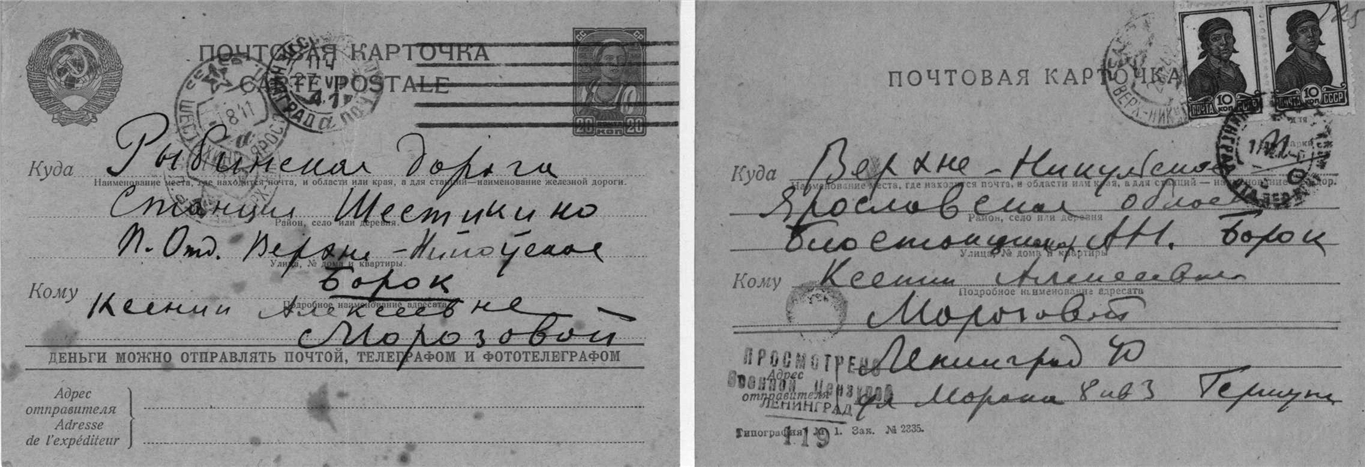 ПОЧТОВАЯ КАРТОЧКА
CARTE POSTALE
20 КОП 20
Куда Рыбинская дорога
Наименование места, где находится почта, и области или края, а для станций—наименование железной дороги.
Станция Шестихино
Район, село или деревня.
П. Отд. Верхне-
Улица, № дома и квартиры.
Борок
Кому
Подробное наименование адресата
Ксении Алексеевне
Морозовой
ДЕНЬГИ МОЖНО ОТПРАВЛЯТЬ ПОЧТОЙ, ТЕЛЕГРАФОМ И ФОТОТЕЛЕГРАФОМ
Адрес
отправителя
Adresse
de l'expéditeur
ПОЧТОВАЯ КАРТОЧКА
ПОЧТА 10 КОП. СССР
ПОЧТА 10 КОП. СССР
Куда Верхне-Никульское
Наименование места, где находится почта, и области или края, а для станций — наименование
Ярославская област
Район, село или деревня
Биостанция АН. Борок
Улица, № дома и квартиры
Кому Ксении Алексеевне
Подробное наименование адресата
Морозовой
ПРОСМОТРЕНО
Военной Цензурой
ЛЕНИНГРАД
119
Адрес
отправителя
Ленинград
8 кв 3
Типография № 1. Зак. № 2335.